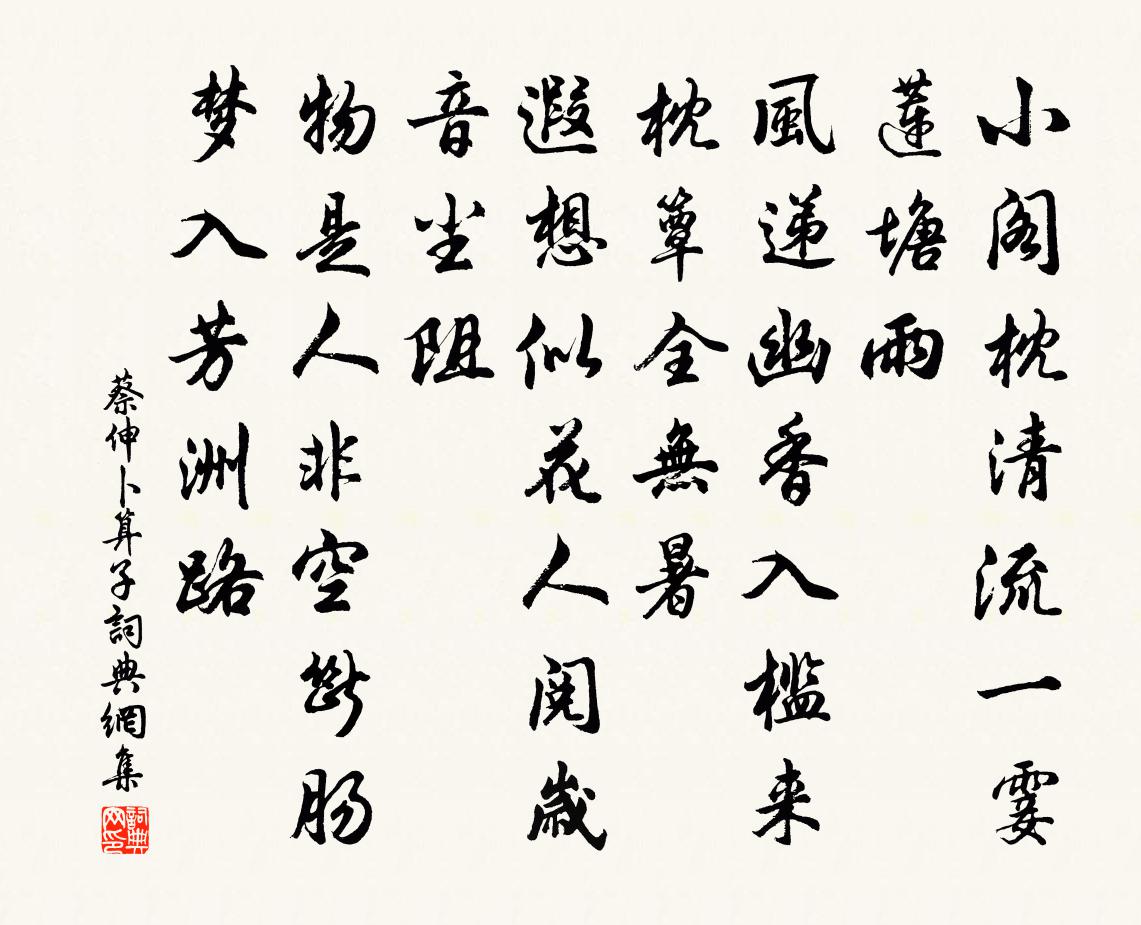 小阁枕清流一霎
莲塘雨
風递幽香入槛来
枕簟全無暑
遐想似花人阅歲
音尘阻
物是人非空断肠
梦入芳洲路
蔡伸卜算子詞典網集
詞典网印